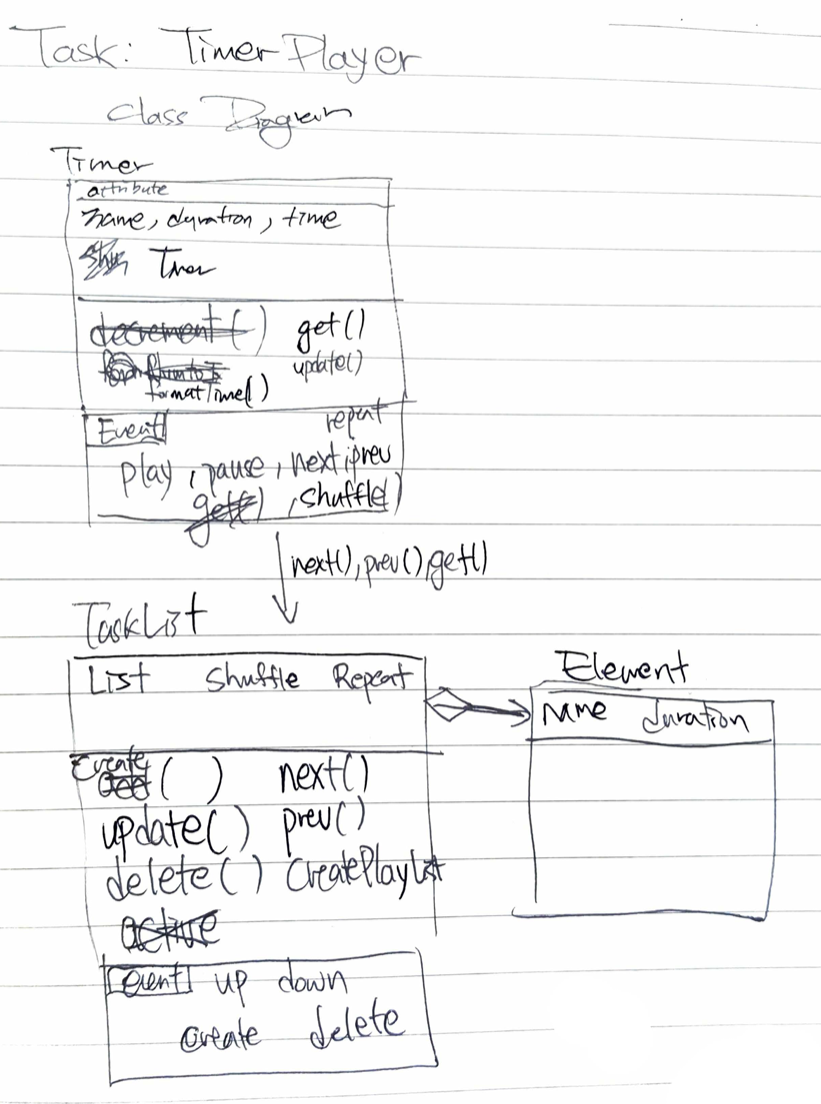 Task: Timer Player
Class Diagram
Timer
attribute
name, duration, time
Timer
decrement() get()
update()
formatTime()
Event repeat
play, pause, next, prev
get(), shuffle
next(), prev(), get()
TaskList
List Shuffle Repeat
Element
name duration
Create
Get() next()
update() prev()
delete() CreatePlayList
active
event up down
create delete